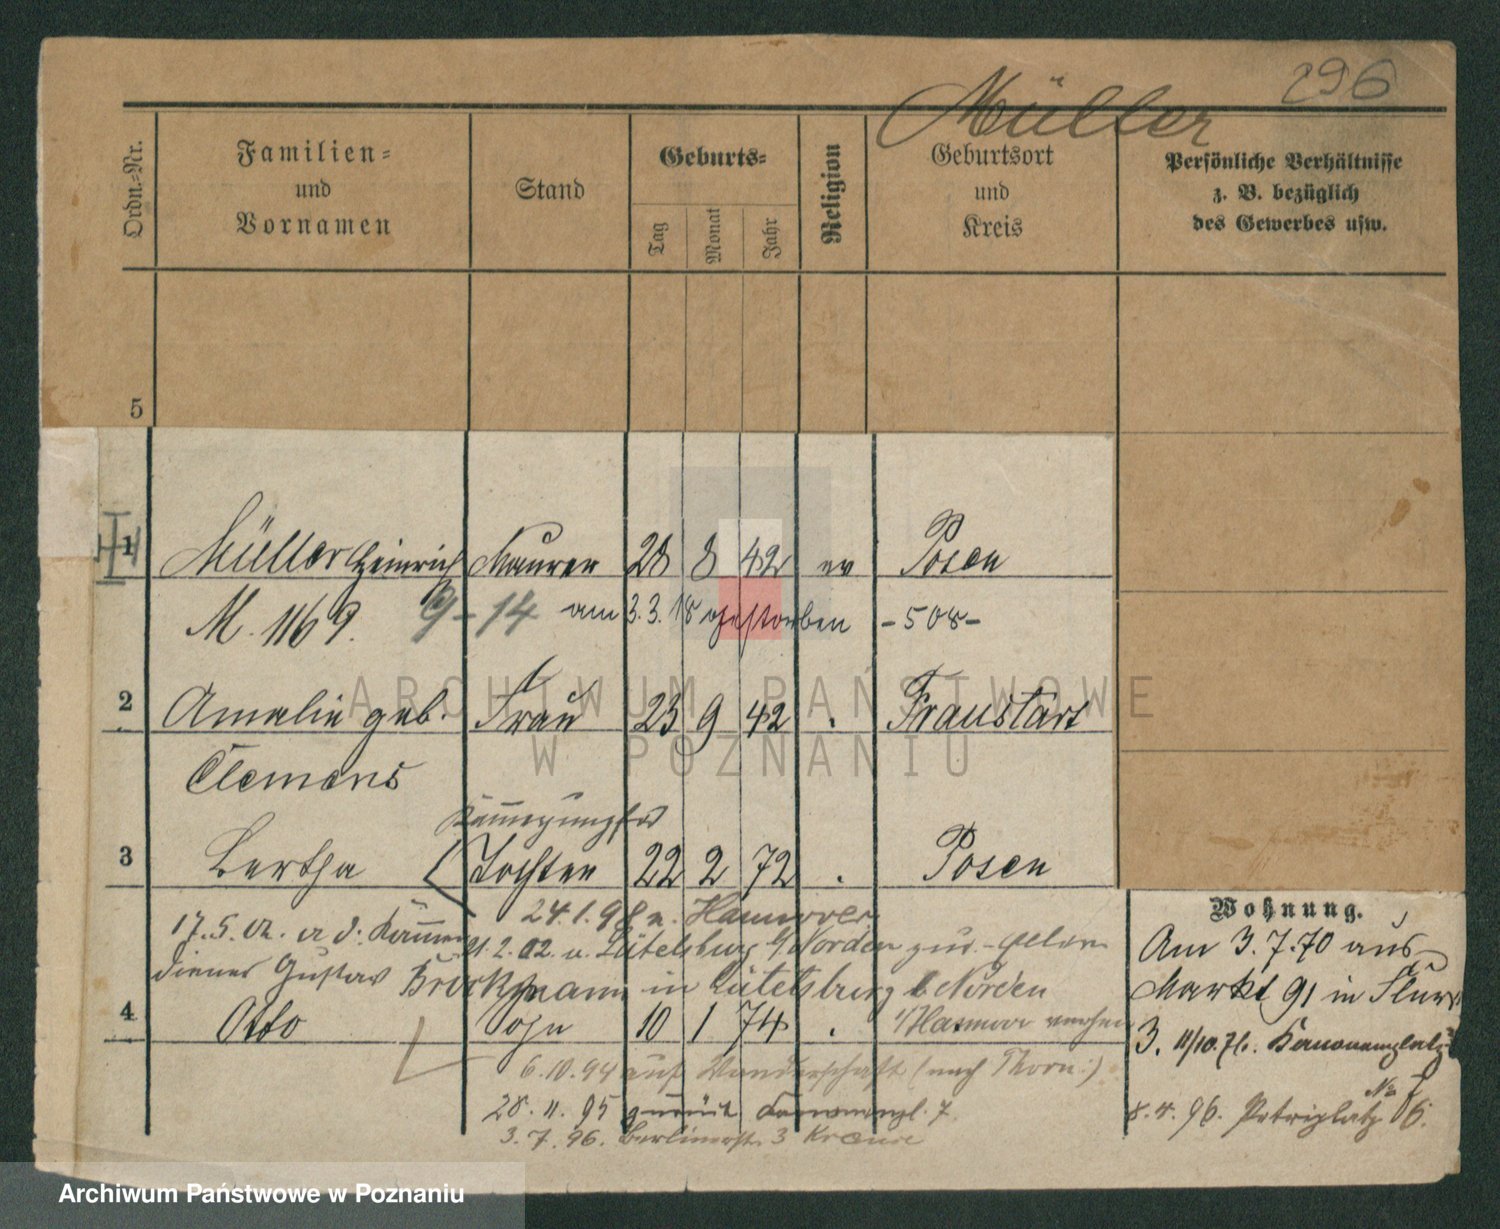 296
Müller
Ordn.-Nr.
Familien-
und
Vornamen
Stand
Geburts-
Tag
Monat
Jahr
Religion
Geburtsort
und
Kreis
Persönliche Verhältnisse
z. B. bezüglich
des Gewerbes usw.
5
1 Müller Heinrich Maurer 28 8 42 ev Posen
M. 1169. 9-14 am 3.3.18 gestorben -508-
2 Amalie geb. Frau 23 9 42 . Fraustadt
Clemens
ARCHIWUM PAŃSTWOWE
W POZNANIU
3 Bertha Tochter 22 2 72 . Posen
24.1.98 n. Hannover
17.5.02. d. Kammer 21.2.02. Lütelsburg Norden
diener Gustav Brockmann in Lütelsburg Norden
4 Otto Sohn 10 1 74 .
6.10.94 auf Wanderschaft (nach Thorn.)
28.11.95 zurück Kanonenpl. 7
3.7.96. Berlinerstr. 3 Krause
Wohnung.
Am 3.7.70 aus
Markt 91 in
3. 11/10. Kanonenplatz
No 7
8.4.96. Petriplatz 6.
Archiwum Państwowe w Poznaniu